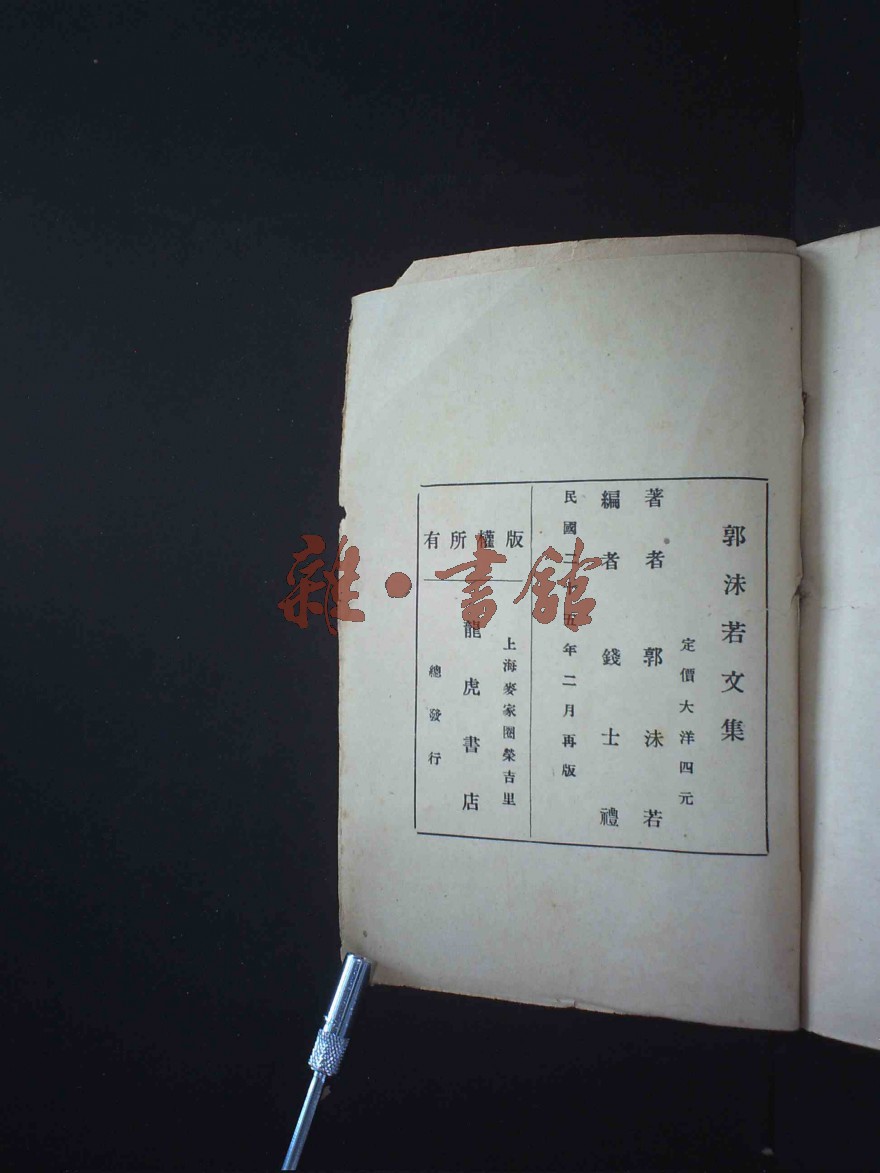 郭沫若文集
定價大洋四元
著者 郭沫若
編者 錢士禮
民國二十五年二月再版
版權所有
上海麥家圈榮吉里
龍虎書店
總發行
雜·書館